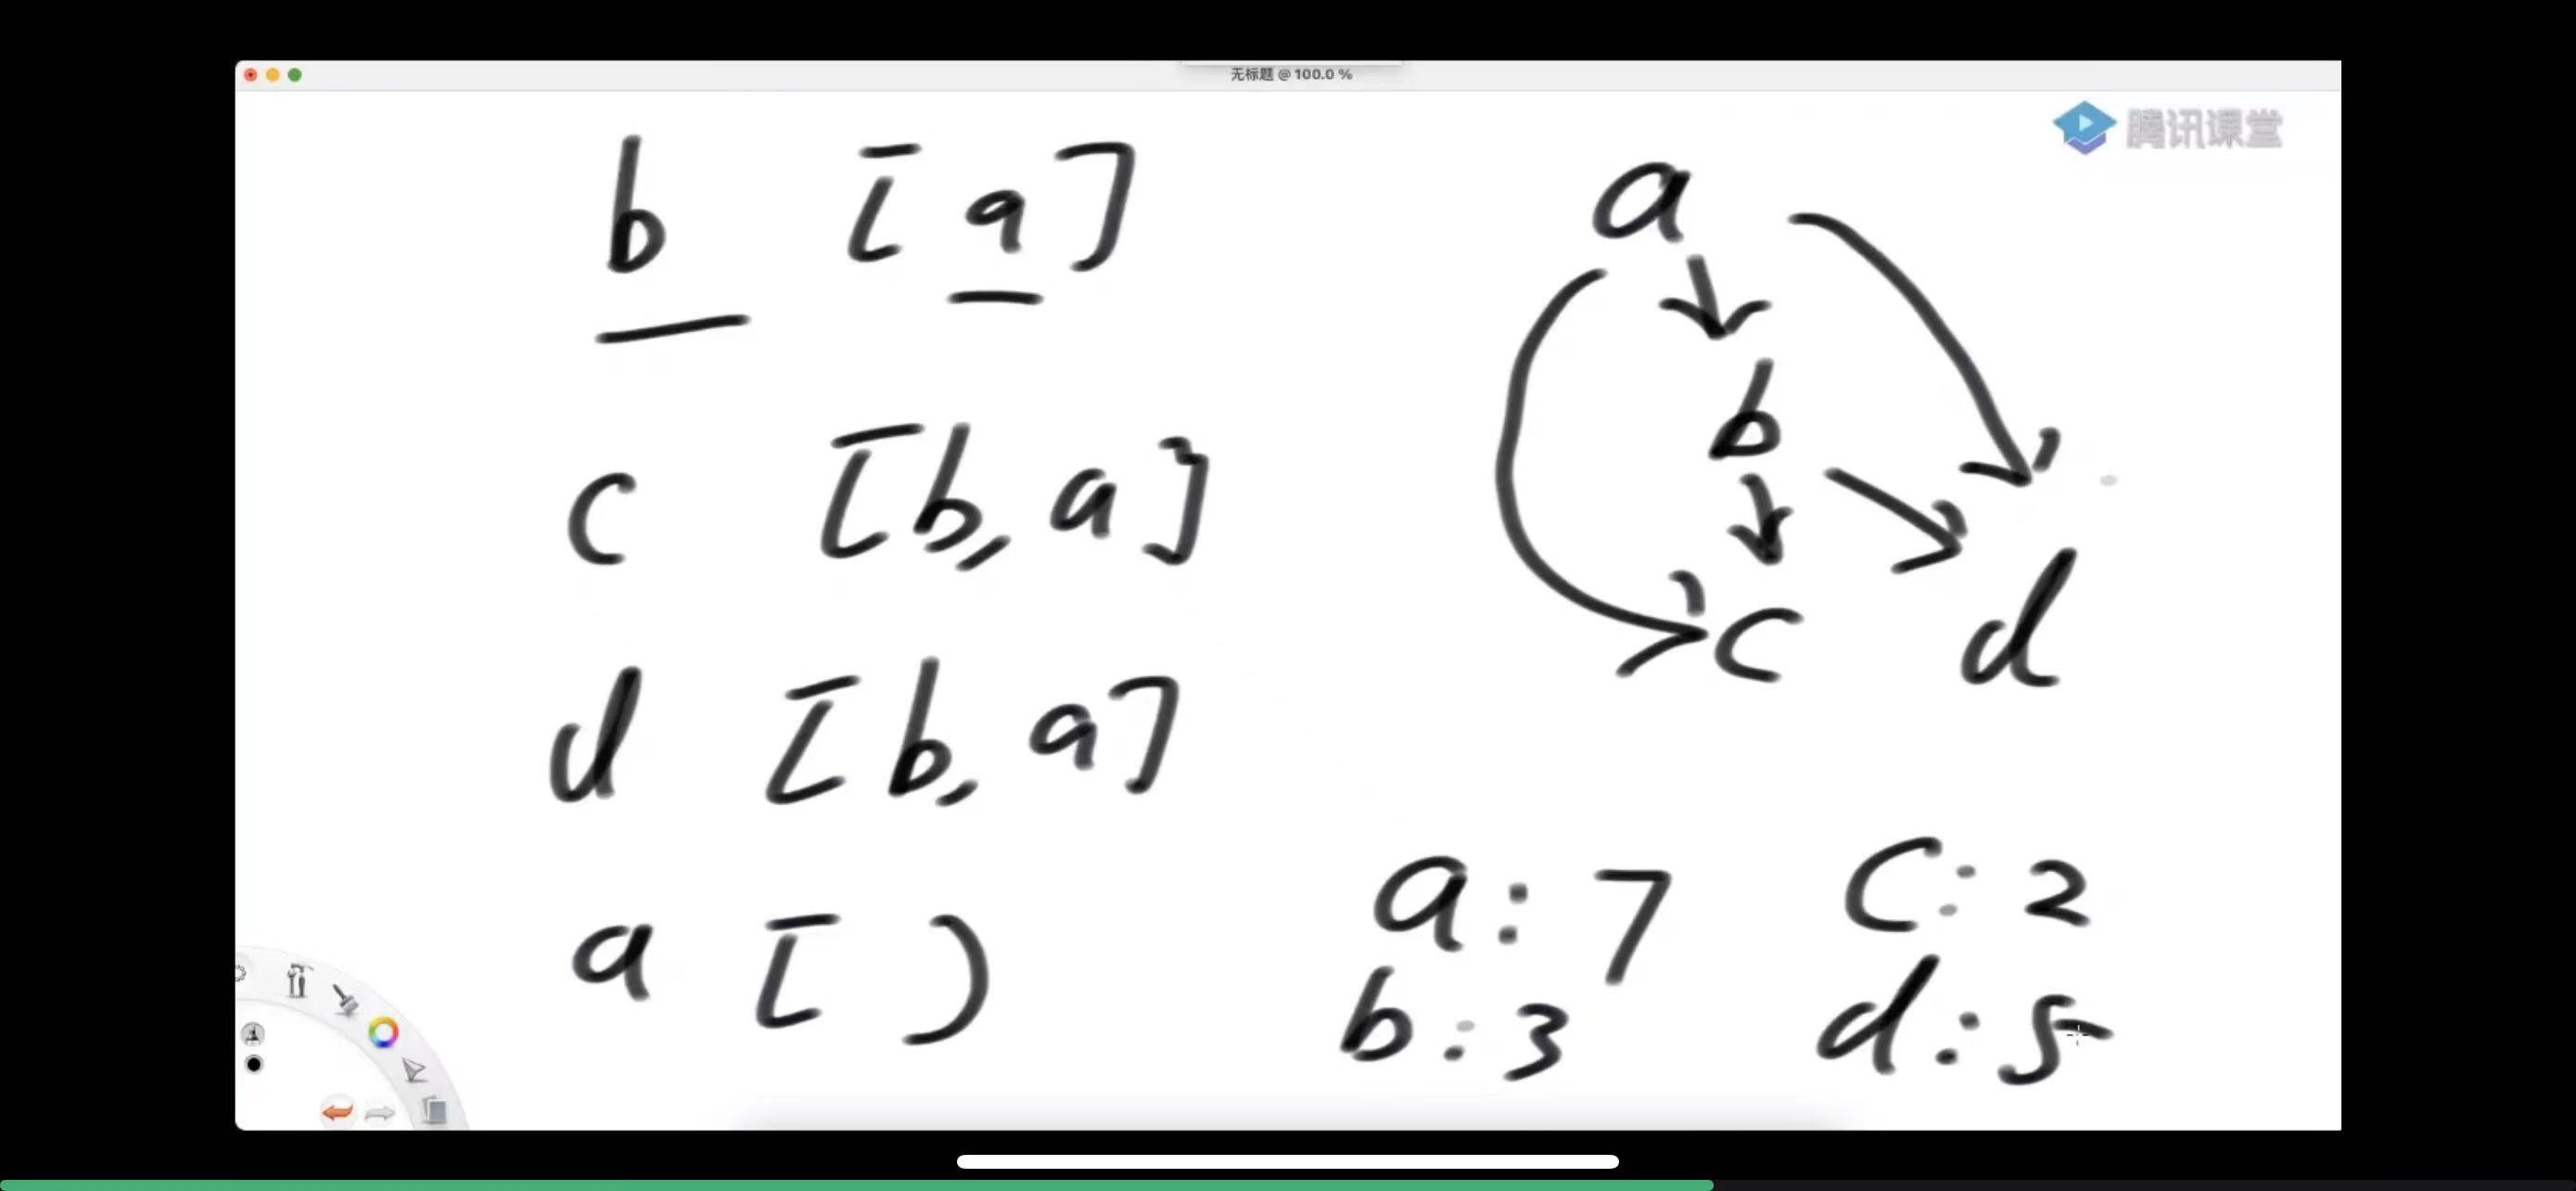 无标题 @ 100.0 %
腾讯课堂
b [a]
c [b, a]
d [b, a]
a [ )
a
b
c d
a: 7 c: 2
b: 3 d: 5